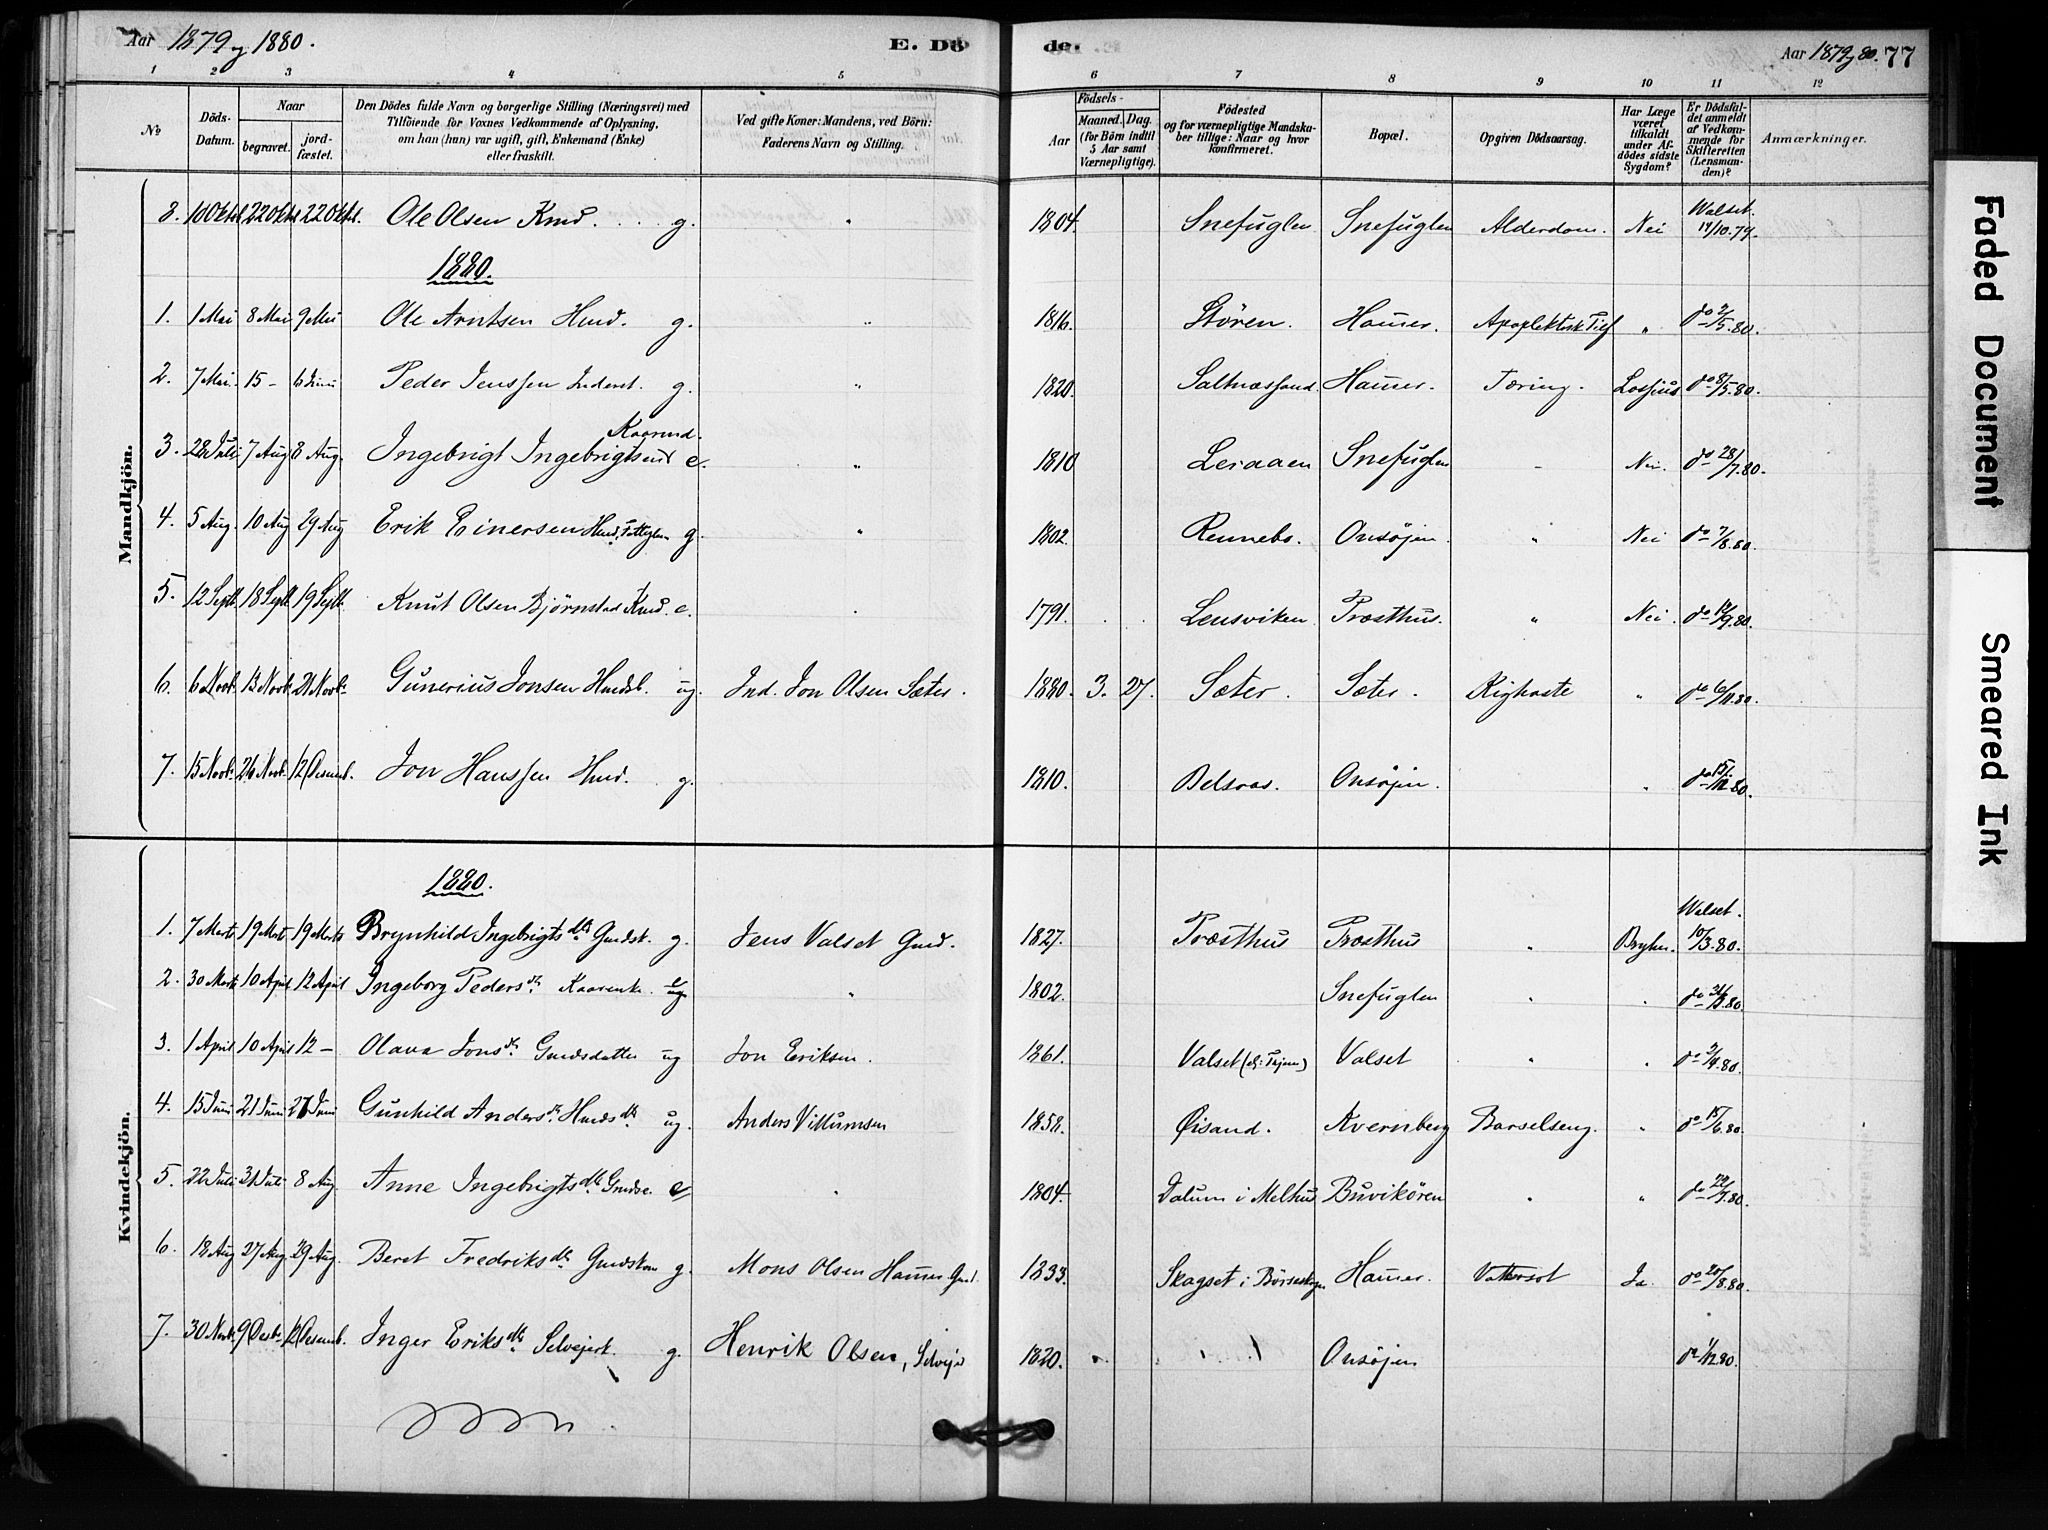 Aar 1879 og 1880.
E. Döde.
Aar 1879 og 80. 77
1 2 3 4 5 6 7 8 9 10 11 12
№
Döds-Datum.
Naar
begravet.
jord-fæstet.
Den Dödes fulde Navn og borgerlige Stilling (Næringsvei) med
Tilföiende for Voxnes Vedkommende af Oplysning,
om han (hun) var ugift, gift, Enkemand (Enke)
eller fraskilt.
Ved gifte Koner: Mandens, ved Börn:
Faderens Navn og Stilling.
Födsels-
Aar
Maaned. Dag.
(for Börn indtil 5 Aar samt Værnepligtige).
Födested
og for værnepligtige Mandska-
ber tillige: Naar og hvor
konfirmeret.
Bopæl.
Opgiven Dödsaarsag.
Har Læge været tilkaldt under Af-dödes sidste Sygdom?
Er Dödsfal-det anmeldt af Vedkom-mende for Skifteretten (Lensman-den)?
Anmærkninger.
Mandkjön.
3. 10 Oktb 22 Oktb. 22 Oktb. Ole Olsen Kmd. g. " 1804. Snefuglen Snefuglen Alderdom. Nei Walset. 14/10.79.
1880.
1. 1 Mai 8 Mai 9 Mai Ole Arntsen Hmd. g. " 1816. Stören. Hamer. Apoplektisk Tilf " do 2/5.80.
2. 7 Mai. 15 - 6 Juni Peder Jenssen Inderst. g. " 1820. Saltnæssand. Hamer. Tæring. Lossius do 8/5.80.
3. 28 Juli 7 Aug 8 Aug. Ingebrigt Ingebrigtsen Kaarmd. e. " 1810 Leraaen Snefuglen - Nei. do 28/7.80.
4. 5 Aug. 10 Aug 29 Aug Erik Einersen Hmd, Fattiglem g. " 1802. Rennebo. Onsøjen. " Nei do 7/8.80.
5. 12 Septb. 18 Septb. 19 Septb. Knut Olsen Bjørnstad Kmd. e. 1791. Lensviken Præsthus. " Nei. do 12/9.80.
6. 6 Novb. 13 Novb. 21 Novb. Gunerius Jonsen Hmdsb. ug. Ind. Jon Olsen Sæter. 1880. 3. 27. Sæter. Sæter. Kighoste " do 6/11.80.
7. 15 Novb. 26 Novb. 12 Desemb. Jon Hanssen Hmd. g. 1810. Belsaas. Onsøjen. " do 15/11.80.
Kvindekjön.
1880.
1. 7 Marts 19 Mart 19 Marts Brynhild Ingebrigtsdtr Gmdsk. g. Jens Valset Gmd. 1827. Præsthus Præsthus " Bryhn. Walset. 10/3.80.
2. 30 Marts 10 April 12 April Ingeborg Pedersdtr. Kaarenke. " 1802. Snefuglen " " do 31/3.80.
3. 1 April 10 April 12 - Olava Jonsdtr. Gmdsdatter ug Jon Eriksen. 1861. Valset Valset " " do 3/4.80.
4. 15 Juni 21 Juni 27 Juni Gunhild Andersdtr. Hmdsdtr. ug. Anders Villumsen 1858. Øisand. Kvernberg Barselseng. " do 15/6.80.
5. 22 Juli 31 Juli 8 Aug. Anne Ingebrigtsdtr. Gmdse. e. " 1804. Dalum i Melhus Buvikören " " do 22/7.80.
6. 18 Aug 27 Aug. 29 Aug. Beret Fredriksdtr. Gmdskone g. Mons Olsen Hamer Gmd. 1833. Skagset i Börseskogn Hamer. Vattersot Ja. do 20/8.80.
7. 30 Novb. 9 Desb. 12 Desemb. Inger Eriksdtr. Selvejerk. g. Henrik Olsen, Selvejer 1820. Onsøjen do 1/12.80.
Faded Document
Smeared Ink